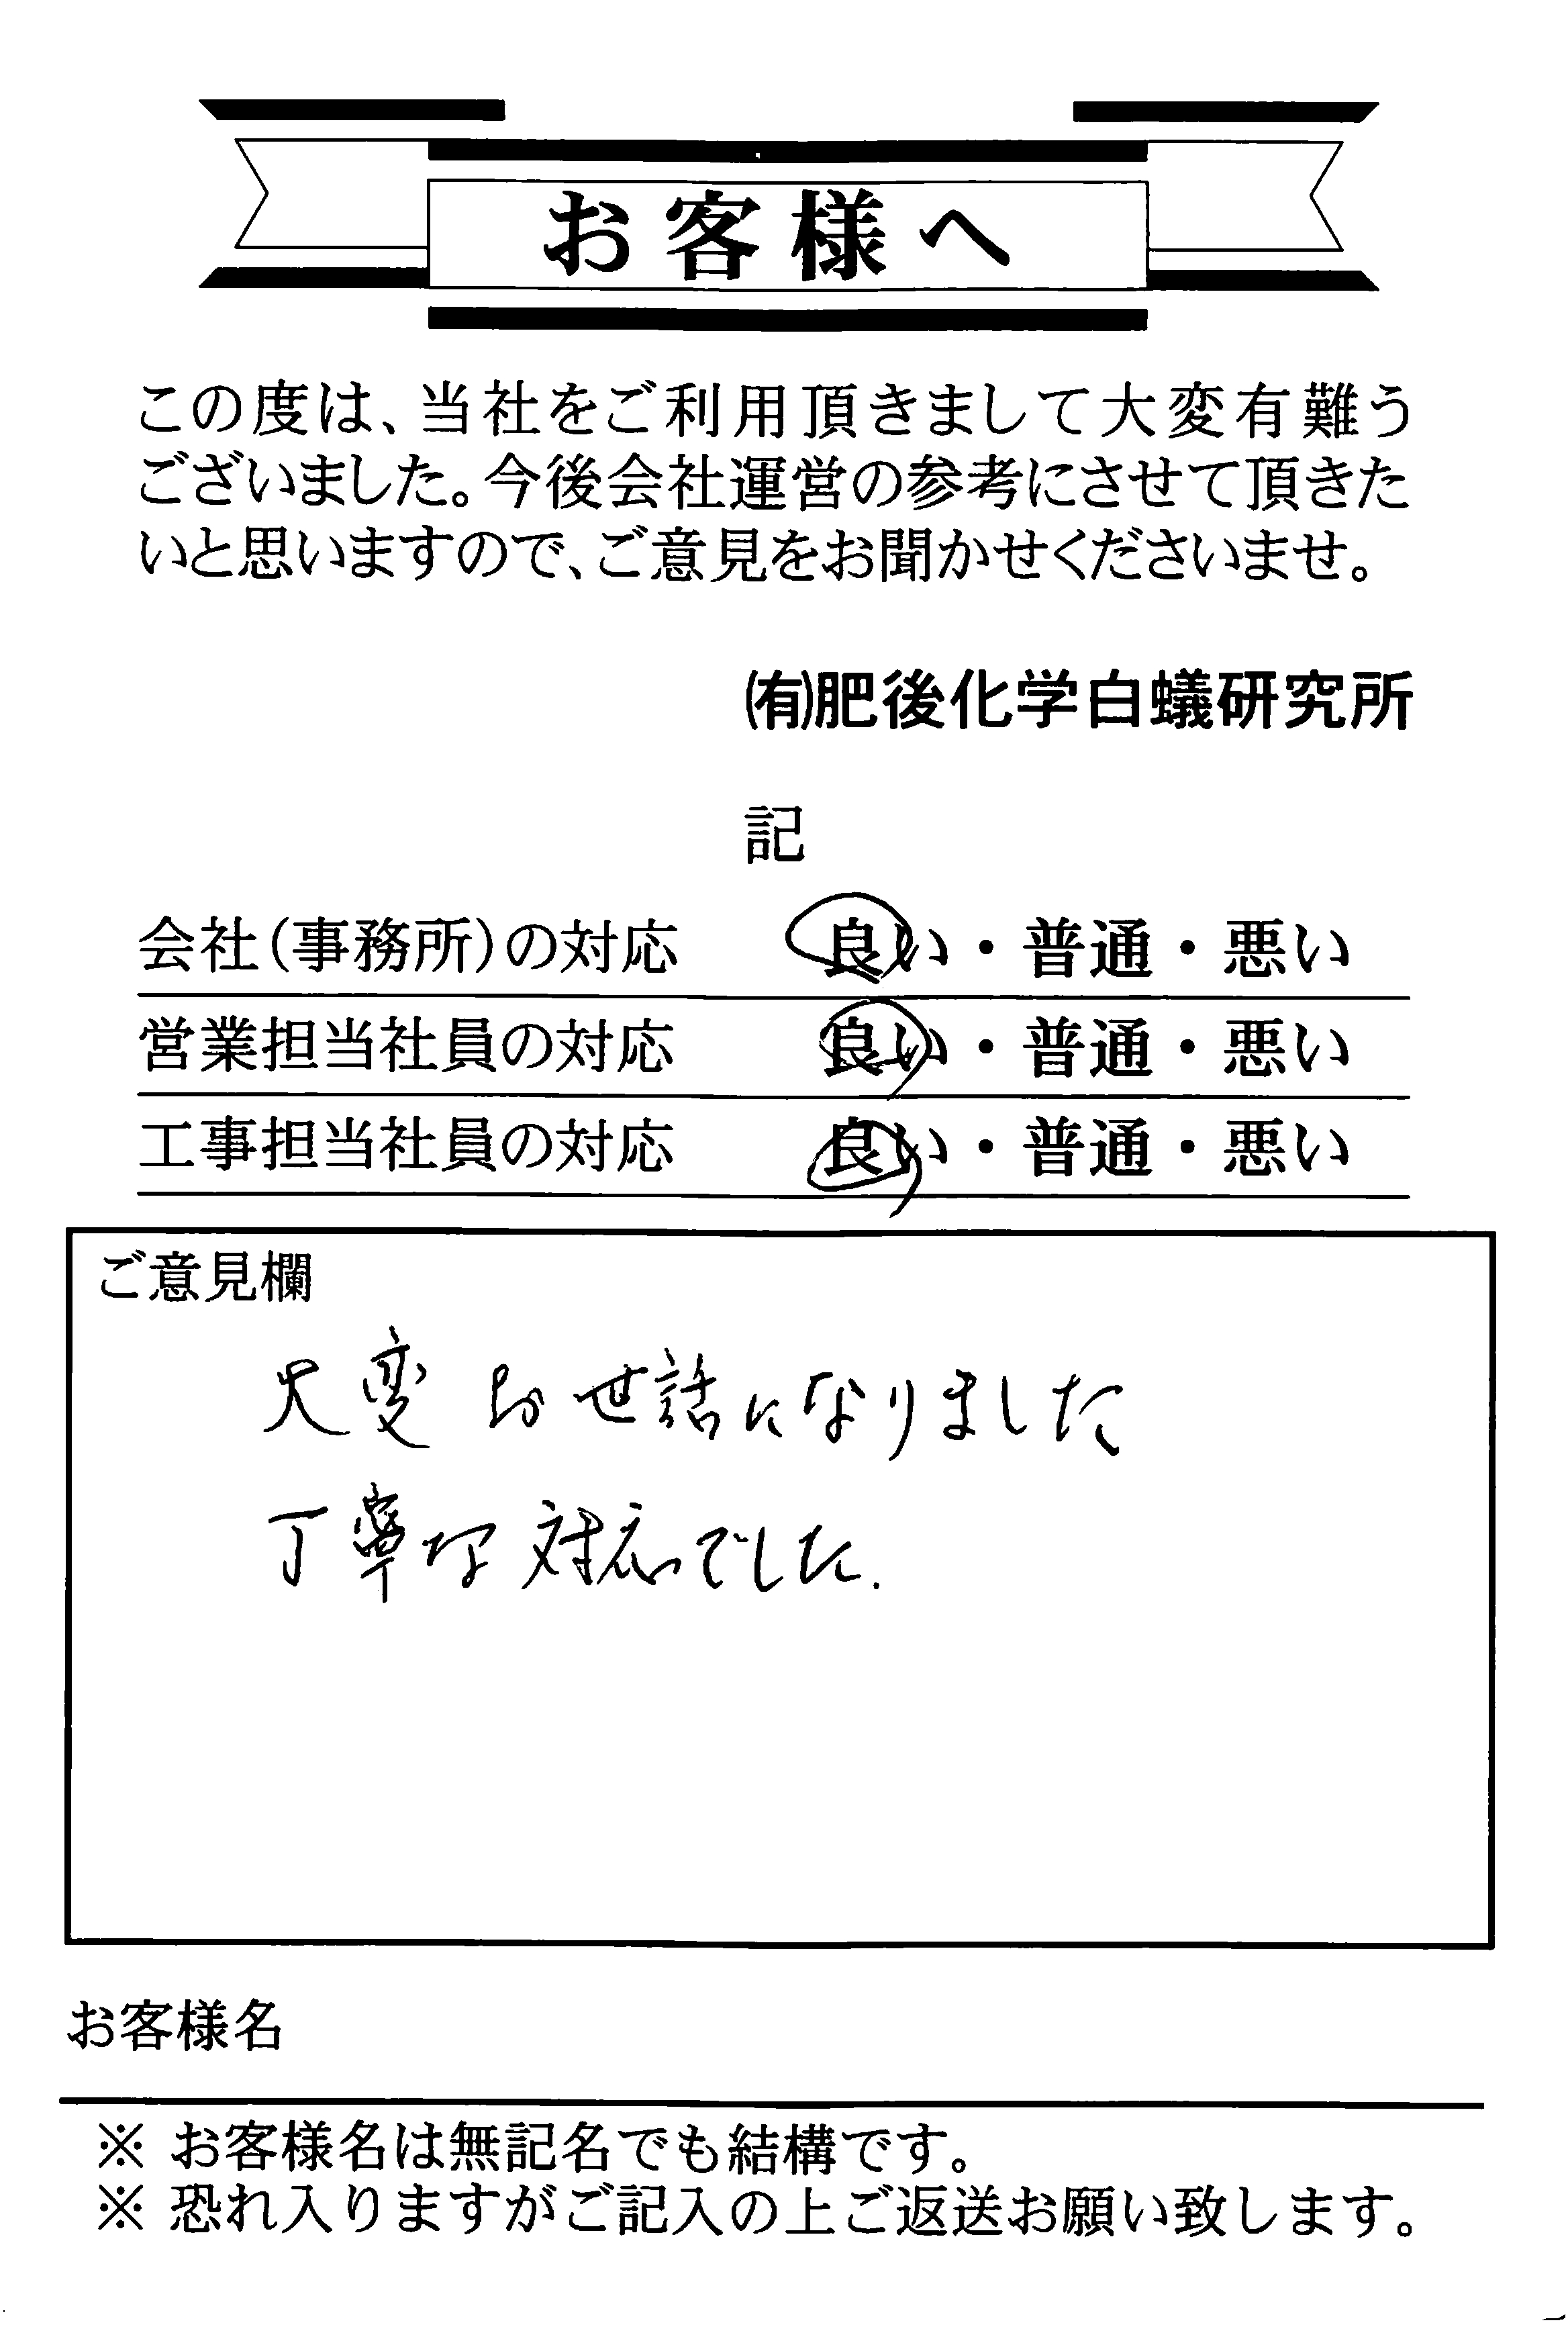 お客様へ
この度は、当社をご利用頂きまして大変有難う
ございました。今後会社運営の参考にさせて頂きた
いと思いますので、ご意見をお聞かせくださいませ。
㈲肥後化学白蟻研究所
記
会社(事務所)の対応 良い・普通・悪い
営業担当社員の対応 良い・普通・悪い
工事担当社員の対応 良い・普通・悪い
ご意見欄
大変お世話になりました
丁寧な対応でした.
お客様名
※ お客様名は無記名でも結構です。
※ 恐れ入りますがご記入の上ご返送お願い致します。